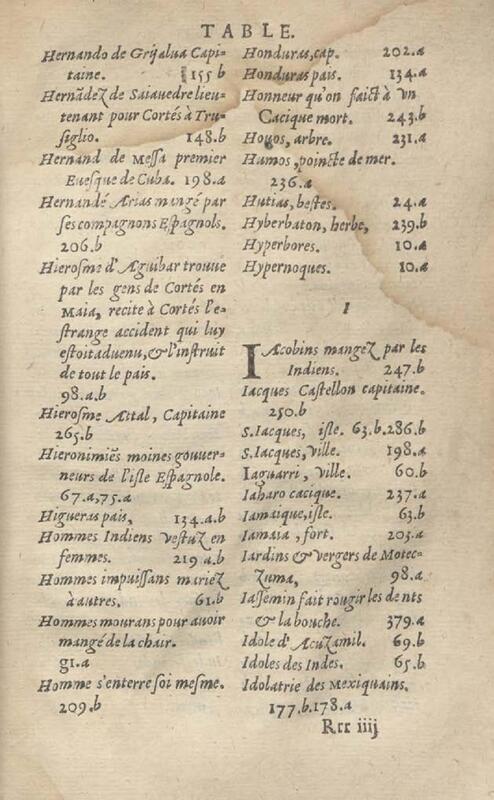 TABLE.
Hernando de Grijalua Capi-
taine. 155 b
Hernãdez de Saiauedre lieu-
tenant pour Cortés à Tru-
siglio. 148.b
Hernand de Messa premier
Euesque de Cuba. 198.a
Hernandé Arias mangé par
ses compagnons Espagnols.
206.b
Hierosme d'Aguibar trouue
par les gens de Cortés en
Maia, recite à Cortés l'e-
strange accident qui luy
estoit aduenu, & l'instruit
de tout le pais.
98.a.b
Hierosme Aital, Capitaine
265.b
Hieronimiẽs moines gouuer-
neurs de l'isle Espagnole.
67.a,75.a
Higueras pais, 134.a.b
Hommes Indiens vestuz en
femmes. 219 a.b
Hommes impuissans mariez
à autres. 61.b
Hommes mourans pour auoir
mangé de la chair.
91.a
Homme s'enterre soi mesme.
209.b
Honduras, cap. 202.a
Honduras pais. 134.a
Honneur qu'on faict à vn
Cacique mort. 243.b
Houos, arbre. 231.a
Hamos, poincte de mer.
236.a
Hutias, bestes. 24.a
Hyberbaton, herbe, 239.b
Hyperbores. 10.a
Hypernoques. 10.a
I
IAcobins mangez par les
Indiens. 247.b
Iacques Castellon capitaine.
250.b
S.Iacques, isle. 63.b.286.b
S.Iacques, ville. 198.a
Iaguarri, ville. 60.b
Iaharo cacique. 237.a
Iamaique, isle. 63.b
Iamaia, fort. 203.a
Iardins & vergers de Motec-
zuma, 98.a
Iassemin fait rougir les dents
& la bouche. 379.a
Idole d'Acuzamil. 69.b
Idoles des Indes. 65.b
Idolatrie des Mexiquains.
177.b.178.a
Rrr iiij